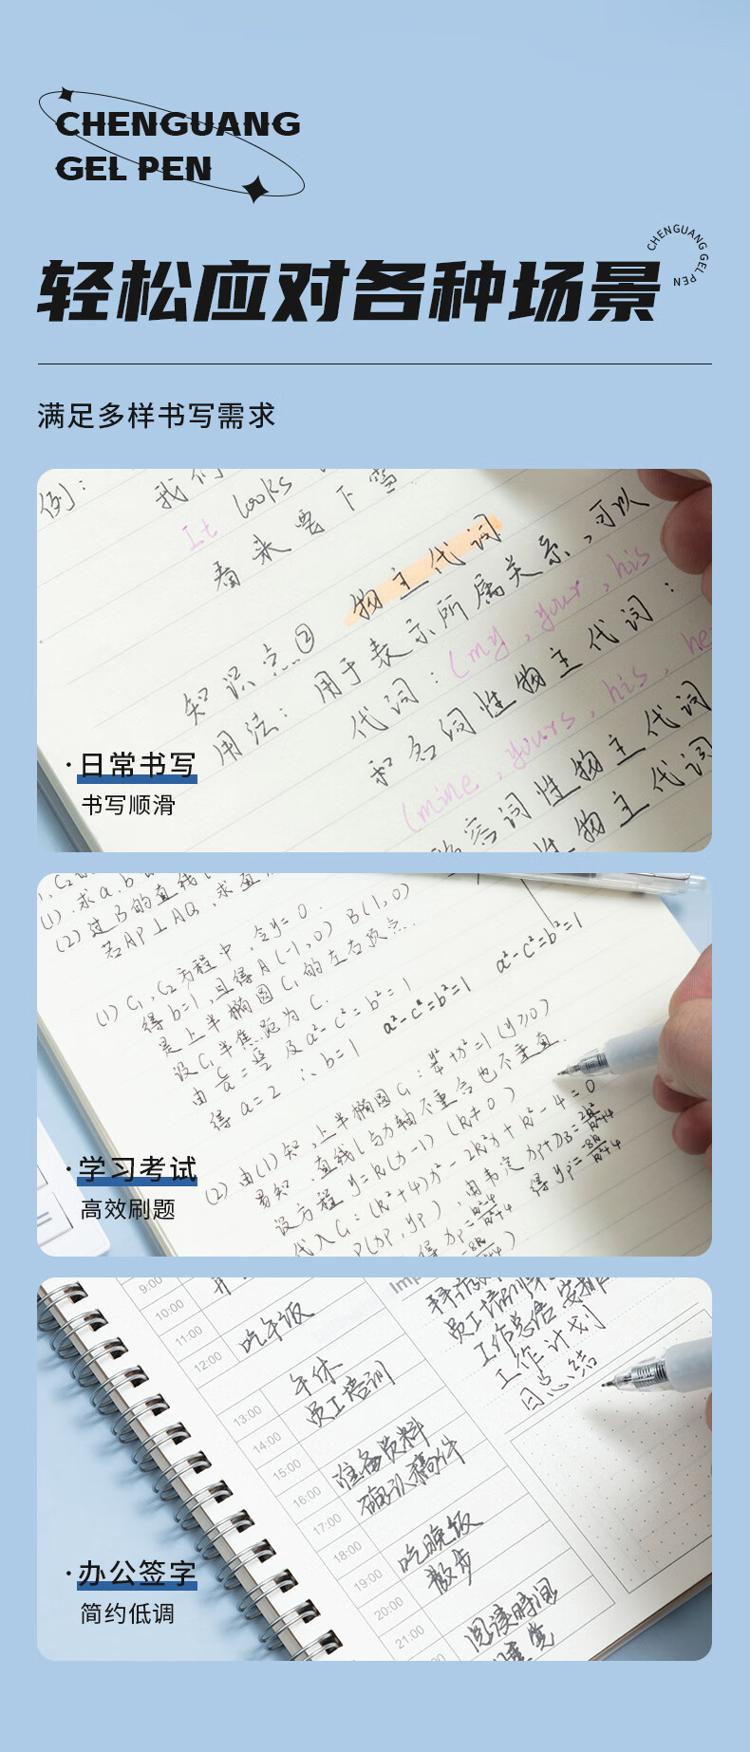 CHENGUANG
GEL PEN
轻松应对各种场景
CHENGUANG GEL PEN
满足多样书写需求
例：我们
It looks
看来要下雪
知识点② 物主代词
用法：用于表示所属关系，可以
代词：(my, your, his
和名词性物主代词：
(mine, yours, his, he
容词性物主代词
性物主代词
·日常书写
书写顺滑
(1).求a.b
(2)过B的直线
若AP⊥AQ，求直
(1) C₁,C₂方程中，令y=0.
得b=1,且得A(-1,0) B(1,0)
是上半椭圆C₁的左右顶点.
设C₁半焦距为C.
由 及a²-c²=b²=1 a²-c²=b²=1 a²-c²=b²=1
得a=2 ∴b=1
(2)由(1)知,上半椭圆C₁: +x²=1(y≥0)
易知,直线l与x轴不重合也不垂直.
设方程y=k(x-1) (k≠0)
代入C₁:(k²+4)x²-2k²x+k²-4=0
·学习考试
高效刷题
9:00
10:00
11:00
12:00
吃午饭
午休
13:00
员工培训
14:00
15:00
准备资料
16:00
确认稿件
17:00
18:00
吃晚饭
19:00
散步
20:00
21:00
阅读时间
Imp
员工培训
工作总结安排
工作计划
日总结
·办公签字
简约低调